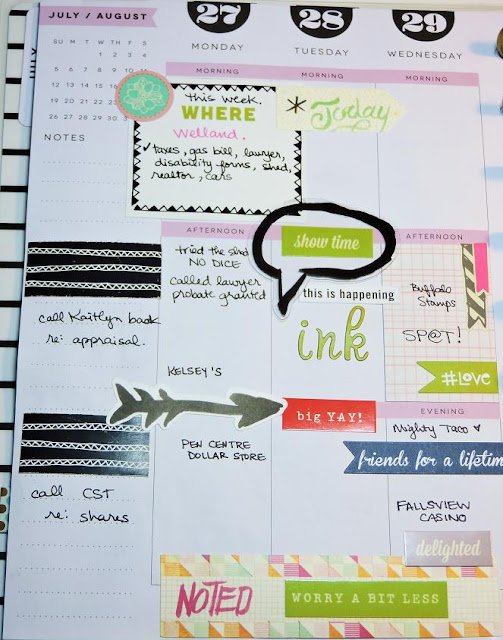 JULY / AUGUST
SU M T W T F S
1 2 3 4
5 6 7 8 9
12 13 14 15 16
19 20 21 22 23
26 27 28 29 30
NOTES
27
MONDAY
28
TUESDAY
29
WEDNESDAY
MORNING
MORNING
MORNING
this week.
WHERE
Welland.
✓taxes, gas bill, lawyer,
disability forms, shed,
realtor, cars
* Today
AFTERNOON
tried the shed
NO DICE
called lawyer
probate granted
KELSEY'S
PEN CENTRE
DOLLAR STORE
show time
this is happening
ink
big YAY!
AFTERNOON
Buffalo
Stamps
SP@T!
#LOVE
EVENING
Mighty Taco
friends for a lifetime
FALLSVIEW
CASINO
delighted
call Kaitlyn back
re: appraisal.
call CST
re: shares
NOTED
WORRY A BIT LESS